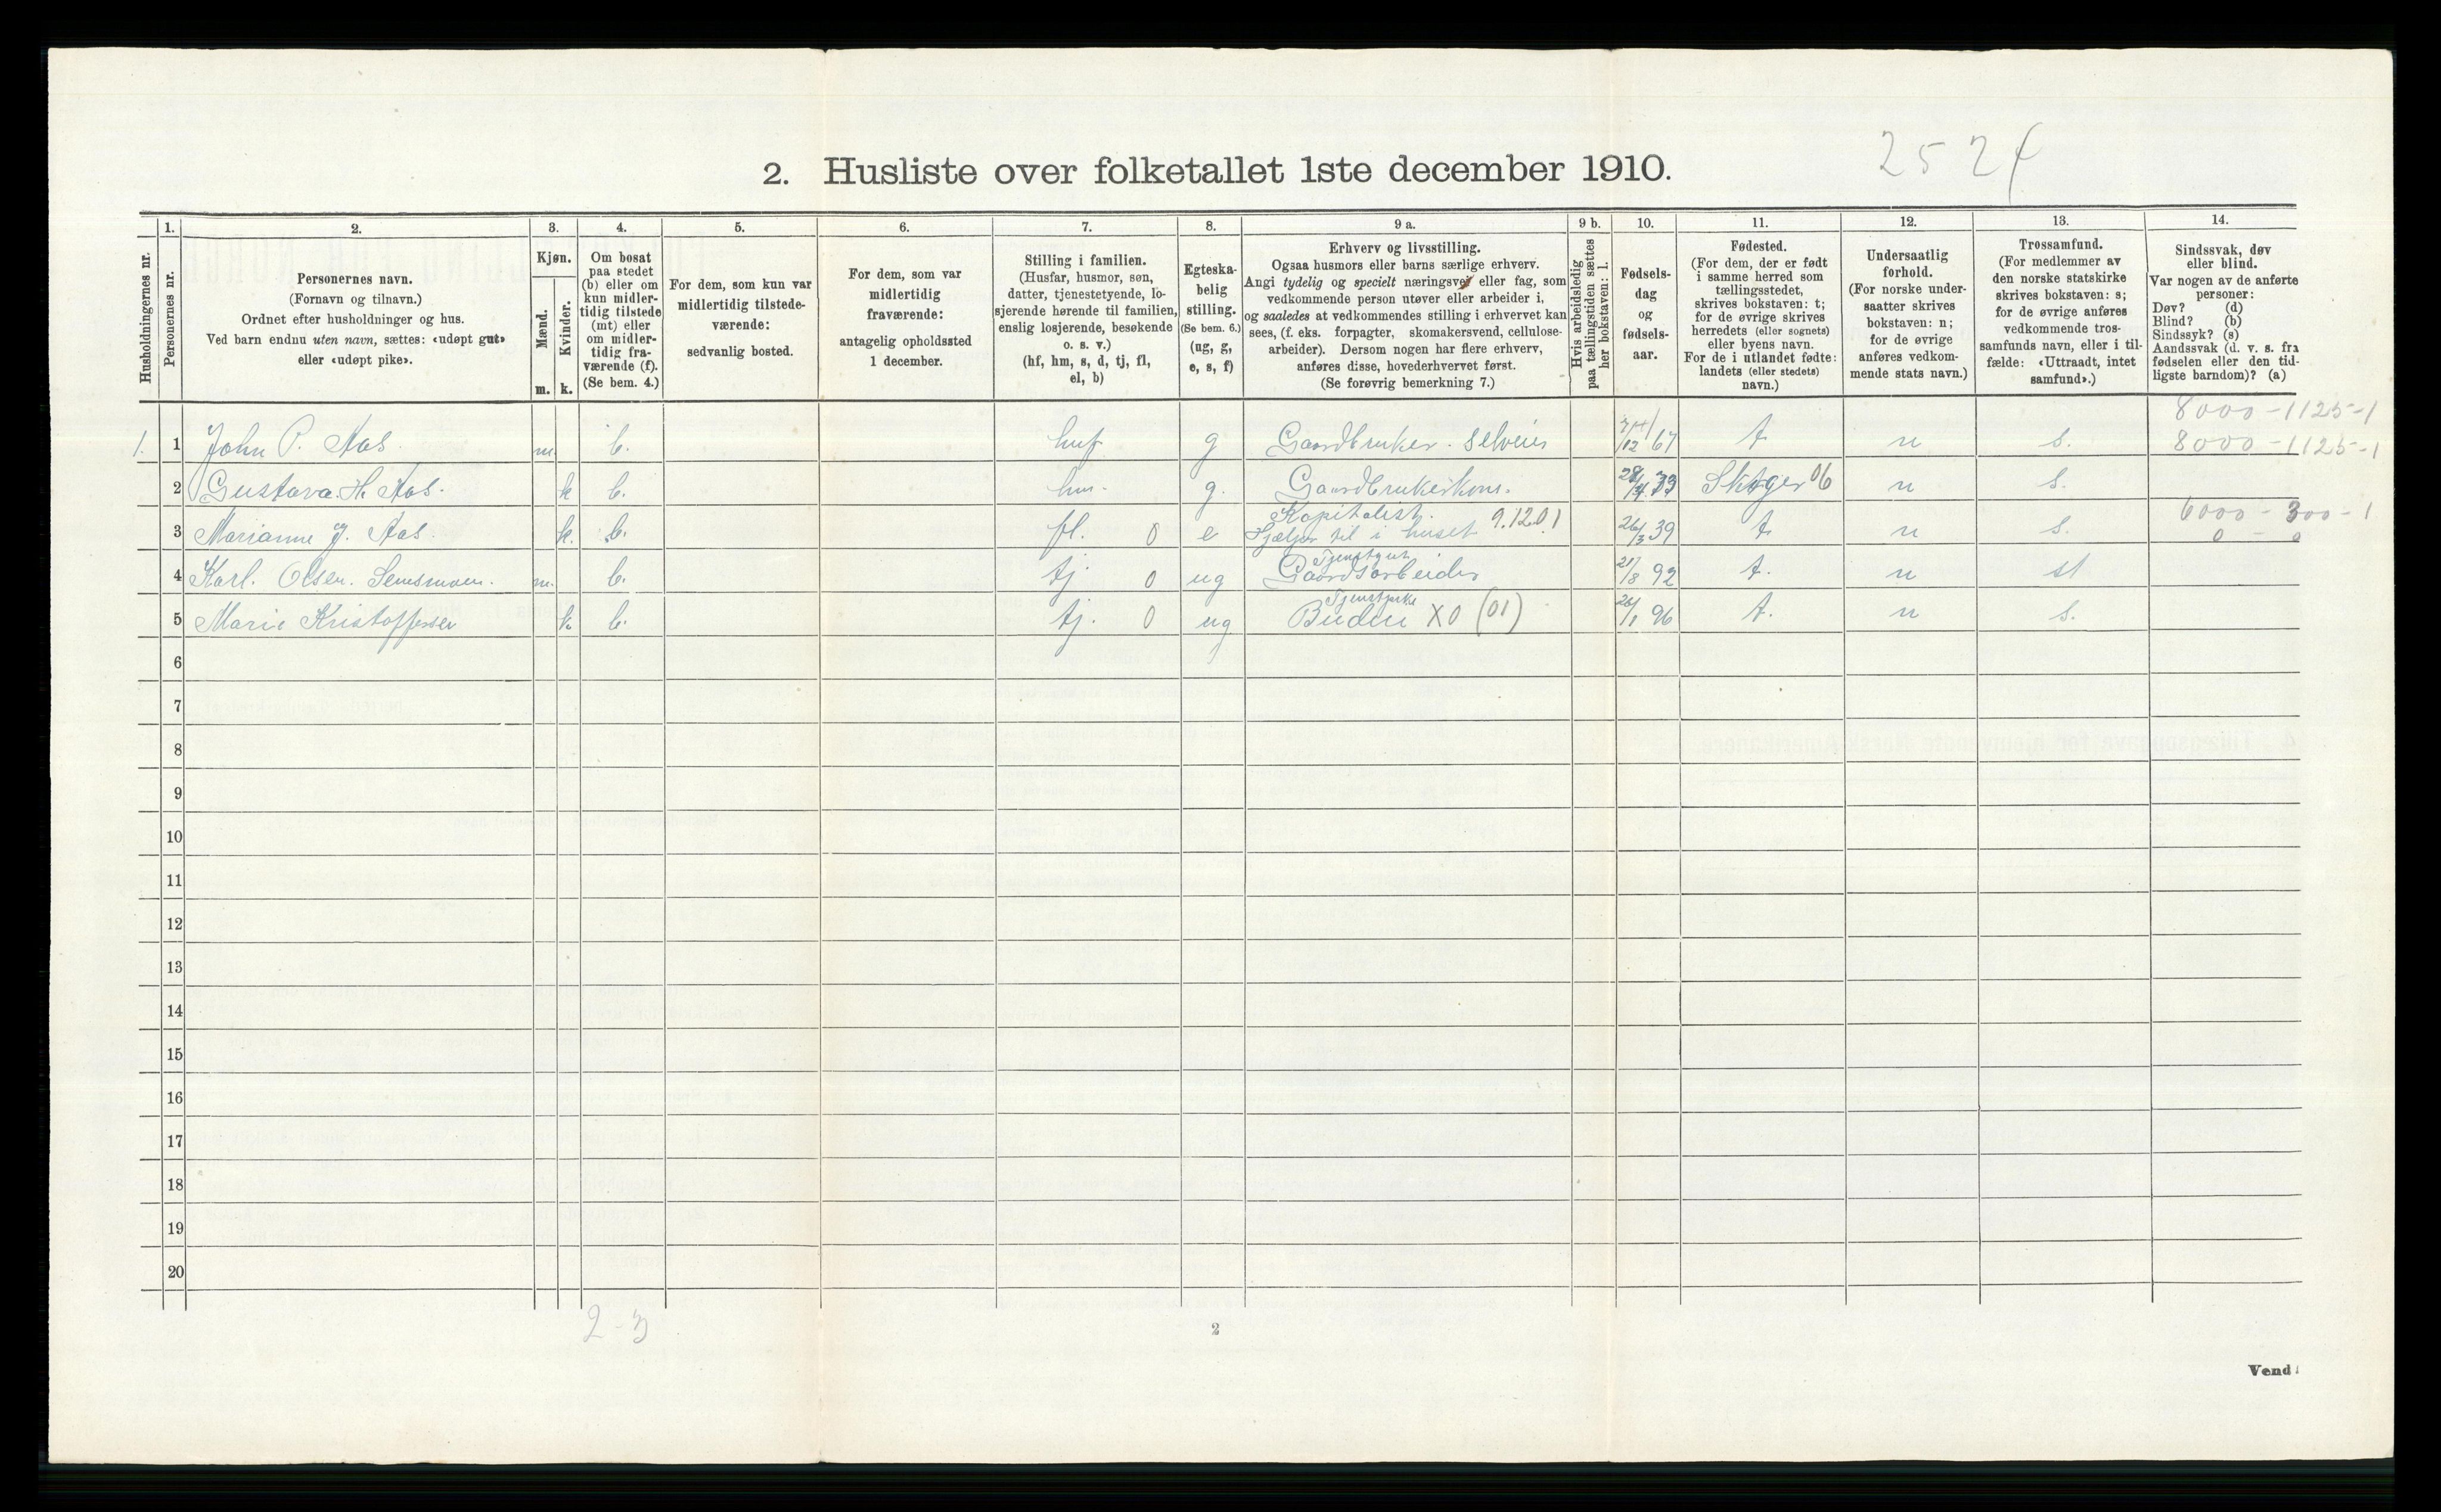 2524
2. Husliste over folketallet 1ste december 1910.
Husholdningernes nr.
1. 2. 3. 4. 5. 6. 7. 8. 9 a. 9 b. 10. 11. 12. 13. 14.
Personernes nr.
Personernes navn.
(Fornavn og tilnavn.)
Ordnet efter husholdninger og hus.
Ved barn endnu uten navn, sættes: «udøpt gut»
eller «udøpt pike».
Kjøn.
Mænd.
Kvinder.
m. k.
Om bosat
paa stedet
(b) eller om
kun midler-
tidig tilstede
(mt) eller
om midler-
tidig fra-
værende (f).
(Se bem. 4.)
For dem, som kun var
midlertidig tilstede-
værende:
sedvanlig bosted.
For dem, som var
midlertidig
fraværende:
antagelig opholdssted
1 december.
Stilling i familien.
(Husfar, husmor, søn,
datter, tjenestetyende, lo-
sjerende hørende til familien,
enslig losjerende, besøkende
o. s. v.)
(hf, hm, s, d, tj, fl,
el, b)
Egteska-
belig
stilling.
(Se bem. 6.)
(ug, g,
e, s, f)
Erhverv og livsstilling.
Ogsaa husmors eller barns særlige erhverv.
Angi tydelig og specielt næringsvei eller fag, som
vedkommende person utøver eller arbeider i,
og saaledes at vedkommendes stilling i erhvervet kan
sees, (f. eks. forpagter, skomakersvend, cellulose-
arbeider). Dersom nogen har flere erhverv,
anføres disse, hovederhvervet først.
(Se forøvrig bemerkning 7.)
Hvis arbeidsledig
paa tællingstiden sættes
her bokstaven: l.
Fødsels-
dag
og
fødsels-
aar.
Fødested.
(For dem, der er født
i samme herred som
tællingsstedet,
skrives bokstaven: t;
for de øvrige skrives
herredets (eller sognets)
eller byens navn.
For de i utlandet fødte:
landets (eller stedets)
navn.)
Undersaatlig
forhold.
(For norske under-
saatter skrives
bokstaven: n;
for de øvrige
anføres vedkom-
mende stats navn.)
Trossamfund.
(For medlemmer av
den norske statskirke
skrives bokstaven: s;
for de øvrige anføres
vedkommende tros-
samfunds navn, eller i til-
fælde: «Uttraadt, intet
samfund».)
Sindssvak, døv
eller blind.
Var nogen av de anførte
personer:
Døv? (d)
Blind? (b)
Sindssyk? (s)
Aandssvak (d. v. s. fra
fødselen eller den tid-
ligste barndom)? (a)
8000-1125-1
1. 1 John P. Aas. m. b. huf g Gaardbruker. selveier /12 67 t. n s. 8000-1125-1
2 Gustava. H. Aas. k b. hm. g. Gaardbrukerkone. 28/4 73 Skoger 06 n s.
Kapitalist. 9.12.01 6000-300-1
3 Marianne J. Aas. k. b. fl. 0 e Hjælper til i huset 26/3 39 t. n s. 0 - 0
Tjenstgut
4 Karl. Olsen. m. b. tj 0 ug Gaardsarbeider 21/8 92 t. n st
Tjenstpike
5 Marie Kristoffersen k b. tj. 0 ug Budeie X0 (01) 26/1 96 t. n s.
6
7
8
9
10
11
12
13
14
15
16
17
18
19
20
2-3
2
Vend!